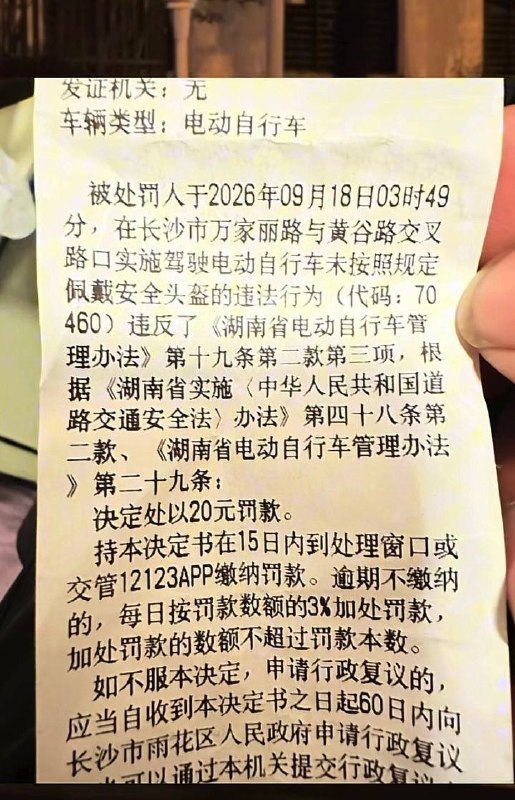 发证机关：无
车辆类型：电动自行车
被处罚人于2026年09月18日03时49
分，在长沙市万家丽路与黄谷路交叉
路口实施驾驶电动自行车未按照规定
佩戴安全头盔的违法行为（代码：70
460）违反了《湖南省电动自行车管
理办法》第十九条第二款第三项，根
据《湖南省实施〈中华人民共和国道
路交通安全法〉办法》第四十八条第
二款、《湖南省电动自行车管理办法
》第二十九条：
决定处以20元罚款。
持本决定书在15日内到处理窗口或
交管12123APP缴纳罚款。逾期不缴纳
的，每日按罚款数额的3%加处罚款，
加处罚款的数额不超过罚款本数。
如不服本决定，申请行政复议的，
应当自收到本决定书之日起60日内向
长沙市雨花区人民政府申请行政复议
可以通过本机关提交行政复议